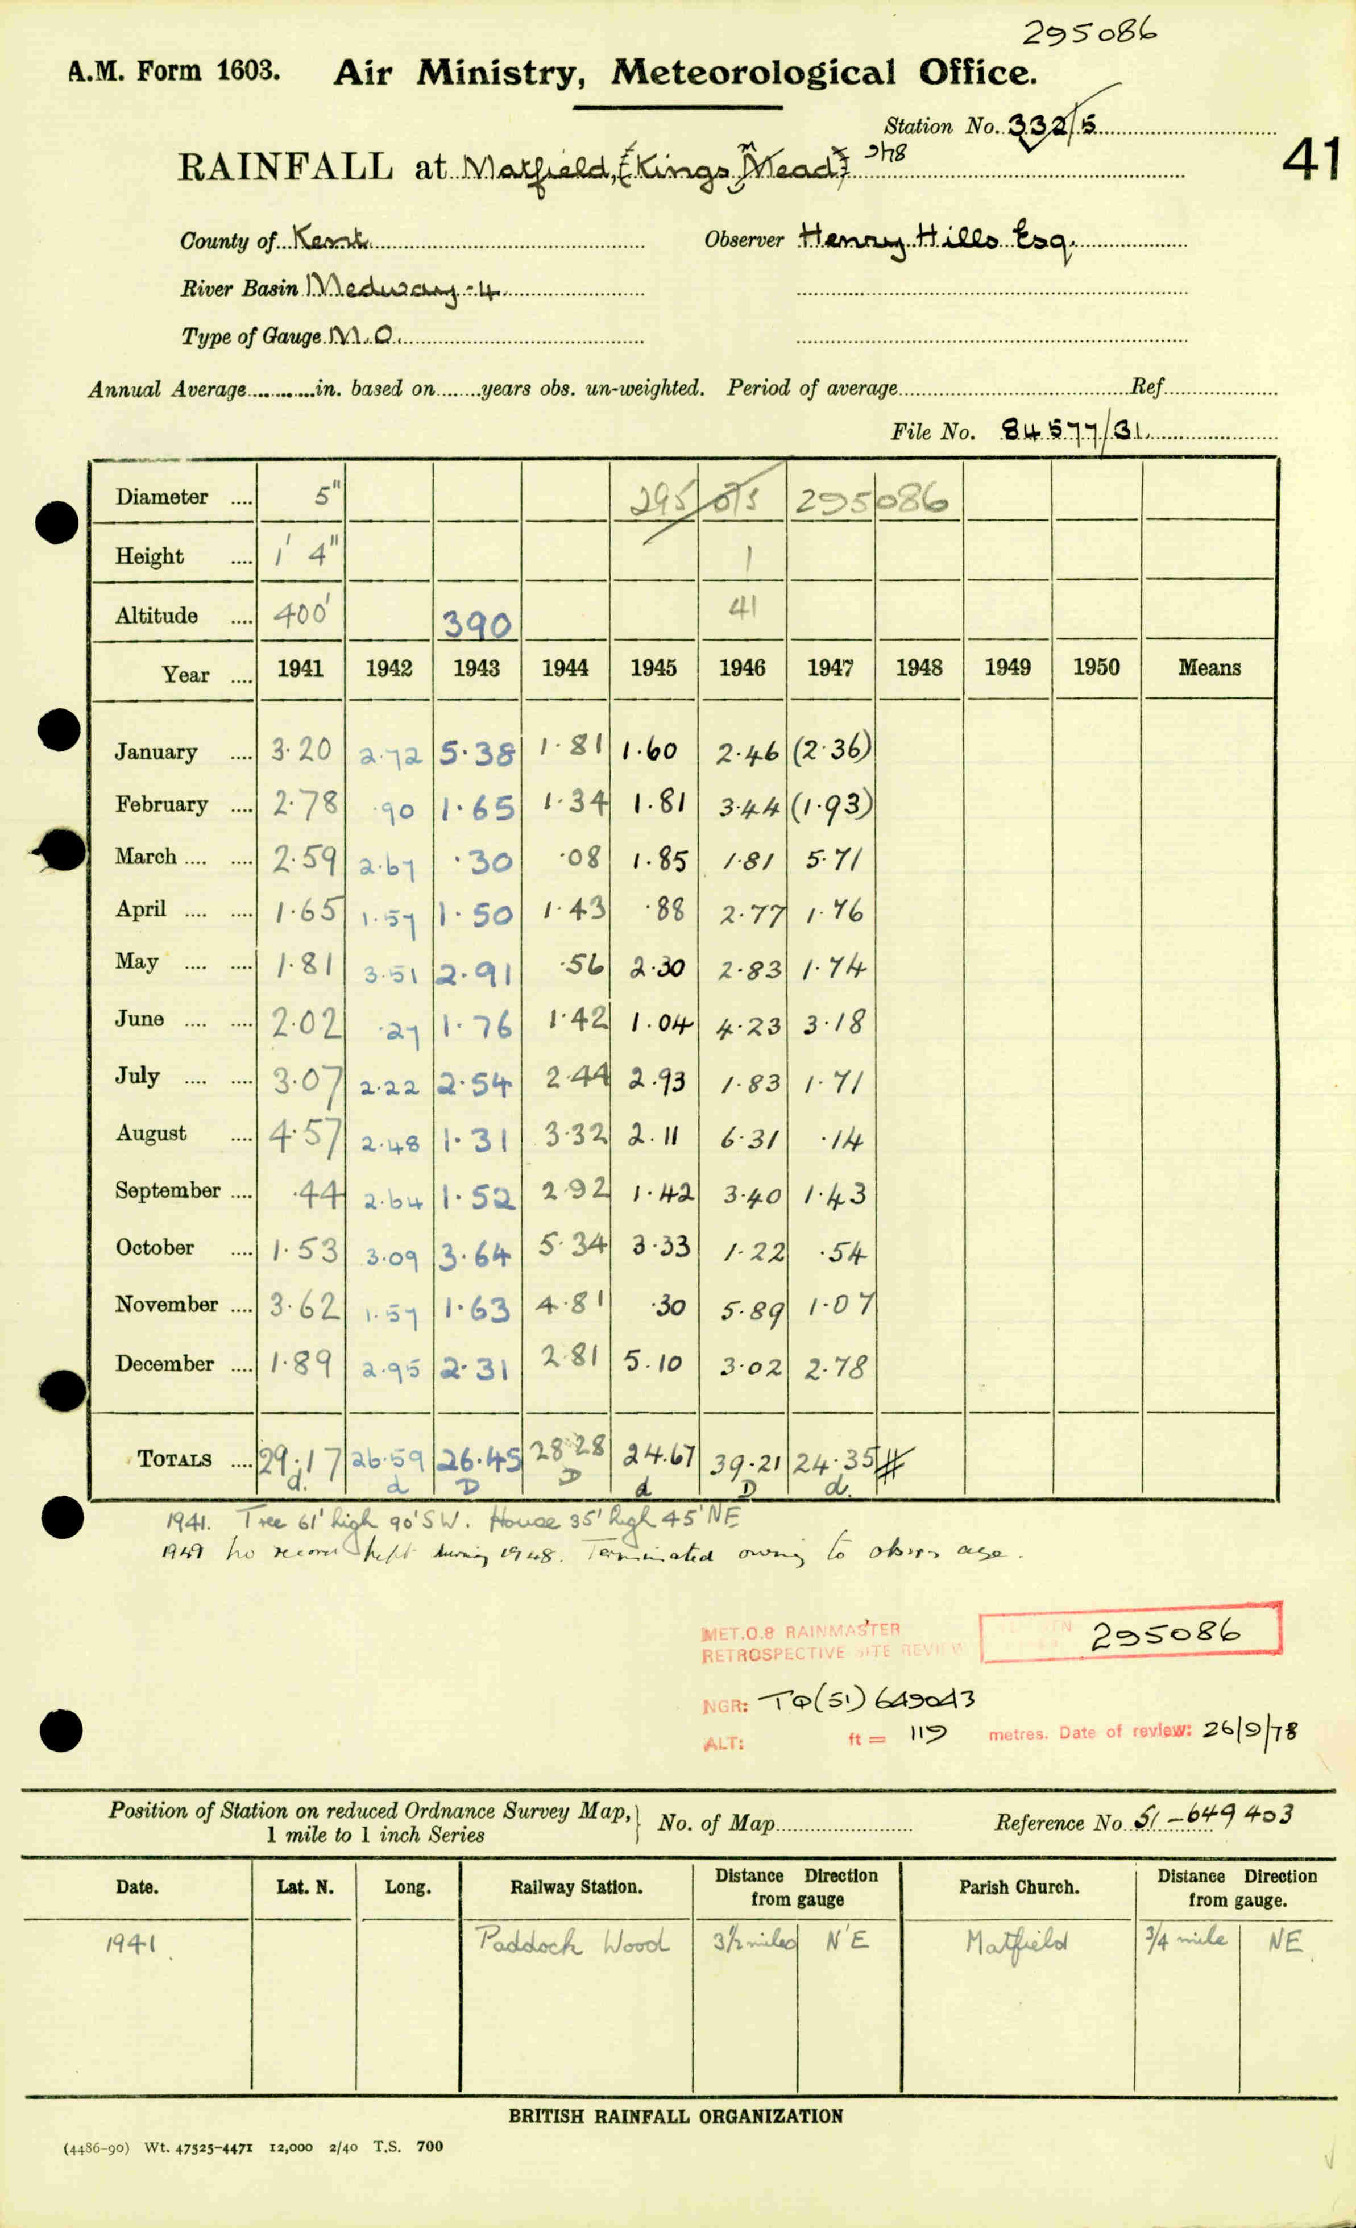 295086
A.M. Form 1603. Air Ministry, Meteorological Office.
Station No. 332/5
41
RAINFALL at Matfield, (Kings Mead)
County of Kent Observer Henry Hills Esq.
River Basin Medway - 4
Type of Gauge M.O.
Annual Average in. based on years obs. un-weighted. Period of average Ref
File No. 84577/31
Diameter 5" 295 075 295086
Height 1' 4" 1
Altitude 400' 390 41
Year 1941 1942 1943 1944 1945 1946 1947 1948 1949 1950 Means
January 3.20 2.72 5.38 1.81 1.60 2.46 (2.36)
February 2.78 .90 1.65 1.34 1.81 3.44 (1.93)
March 2.59 2.67 .30 .08 1.85 1.81 5.71
April 1.65 1.57 1.50 1.43 .88 2.77 1.76
May 1.81 3.51 2.91 .56 2.30 2.83 1.74
June 2.02 .27 1.76 1.42 1.04 4.23 3.18
July 3.07 2.22 2.54 2.44 2.93 1.83 1.71
August 4.57 2.48 1.31 3.32 2.11 6.31 .14
September .44 2.64 1.52 2.92 1.42 3.40 1.43
October 1.53 3.09 3.64 5.34 3.33 1.22 .54
November 3.62 1.57 1.63 4.81 .30 5.89 1.07
December 1.89 2.95 2.31 2.81 5.10 3.02 2.78
TOTALS 29.17 26.59 26.45 28.28 24.67 39.21 24.35 #
d. d D D d D d.
1941. Tree 61' high 90' SW. House 35' high 45' NE
1949 No record kept during 1948. Terminated owing to obsrs age.
MET.O.8 RAINMASTER
RETROSPECTIVE SITE REVIEW 295086
NGR: TQ(51) 649043
ALT: ft = 119 metres. Date of review: 26/9/78
Position of Station on reduced Ordnance Survey Map, No. of Map Reference No 51-649 403
1 mile to 1 inch Series
Date. Lat. N. Long. Railway Station. Distance Direction from gauge Parish Church. Distance Direction from gauge.
1941. Paddock Wood 3½ miles N'E Matfield 3/4 mile NE.
BRITISH RAINFALL ORGANIZATION
(4486-90) Wt. 47525-4471 12,000 2/40 T.S. 700